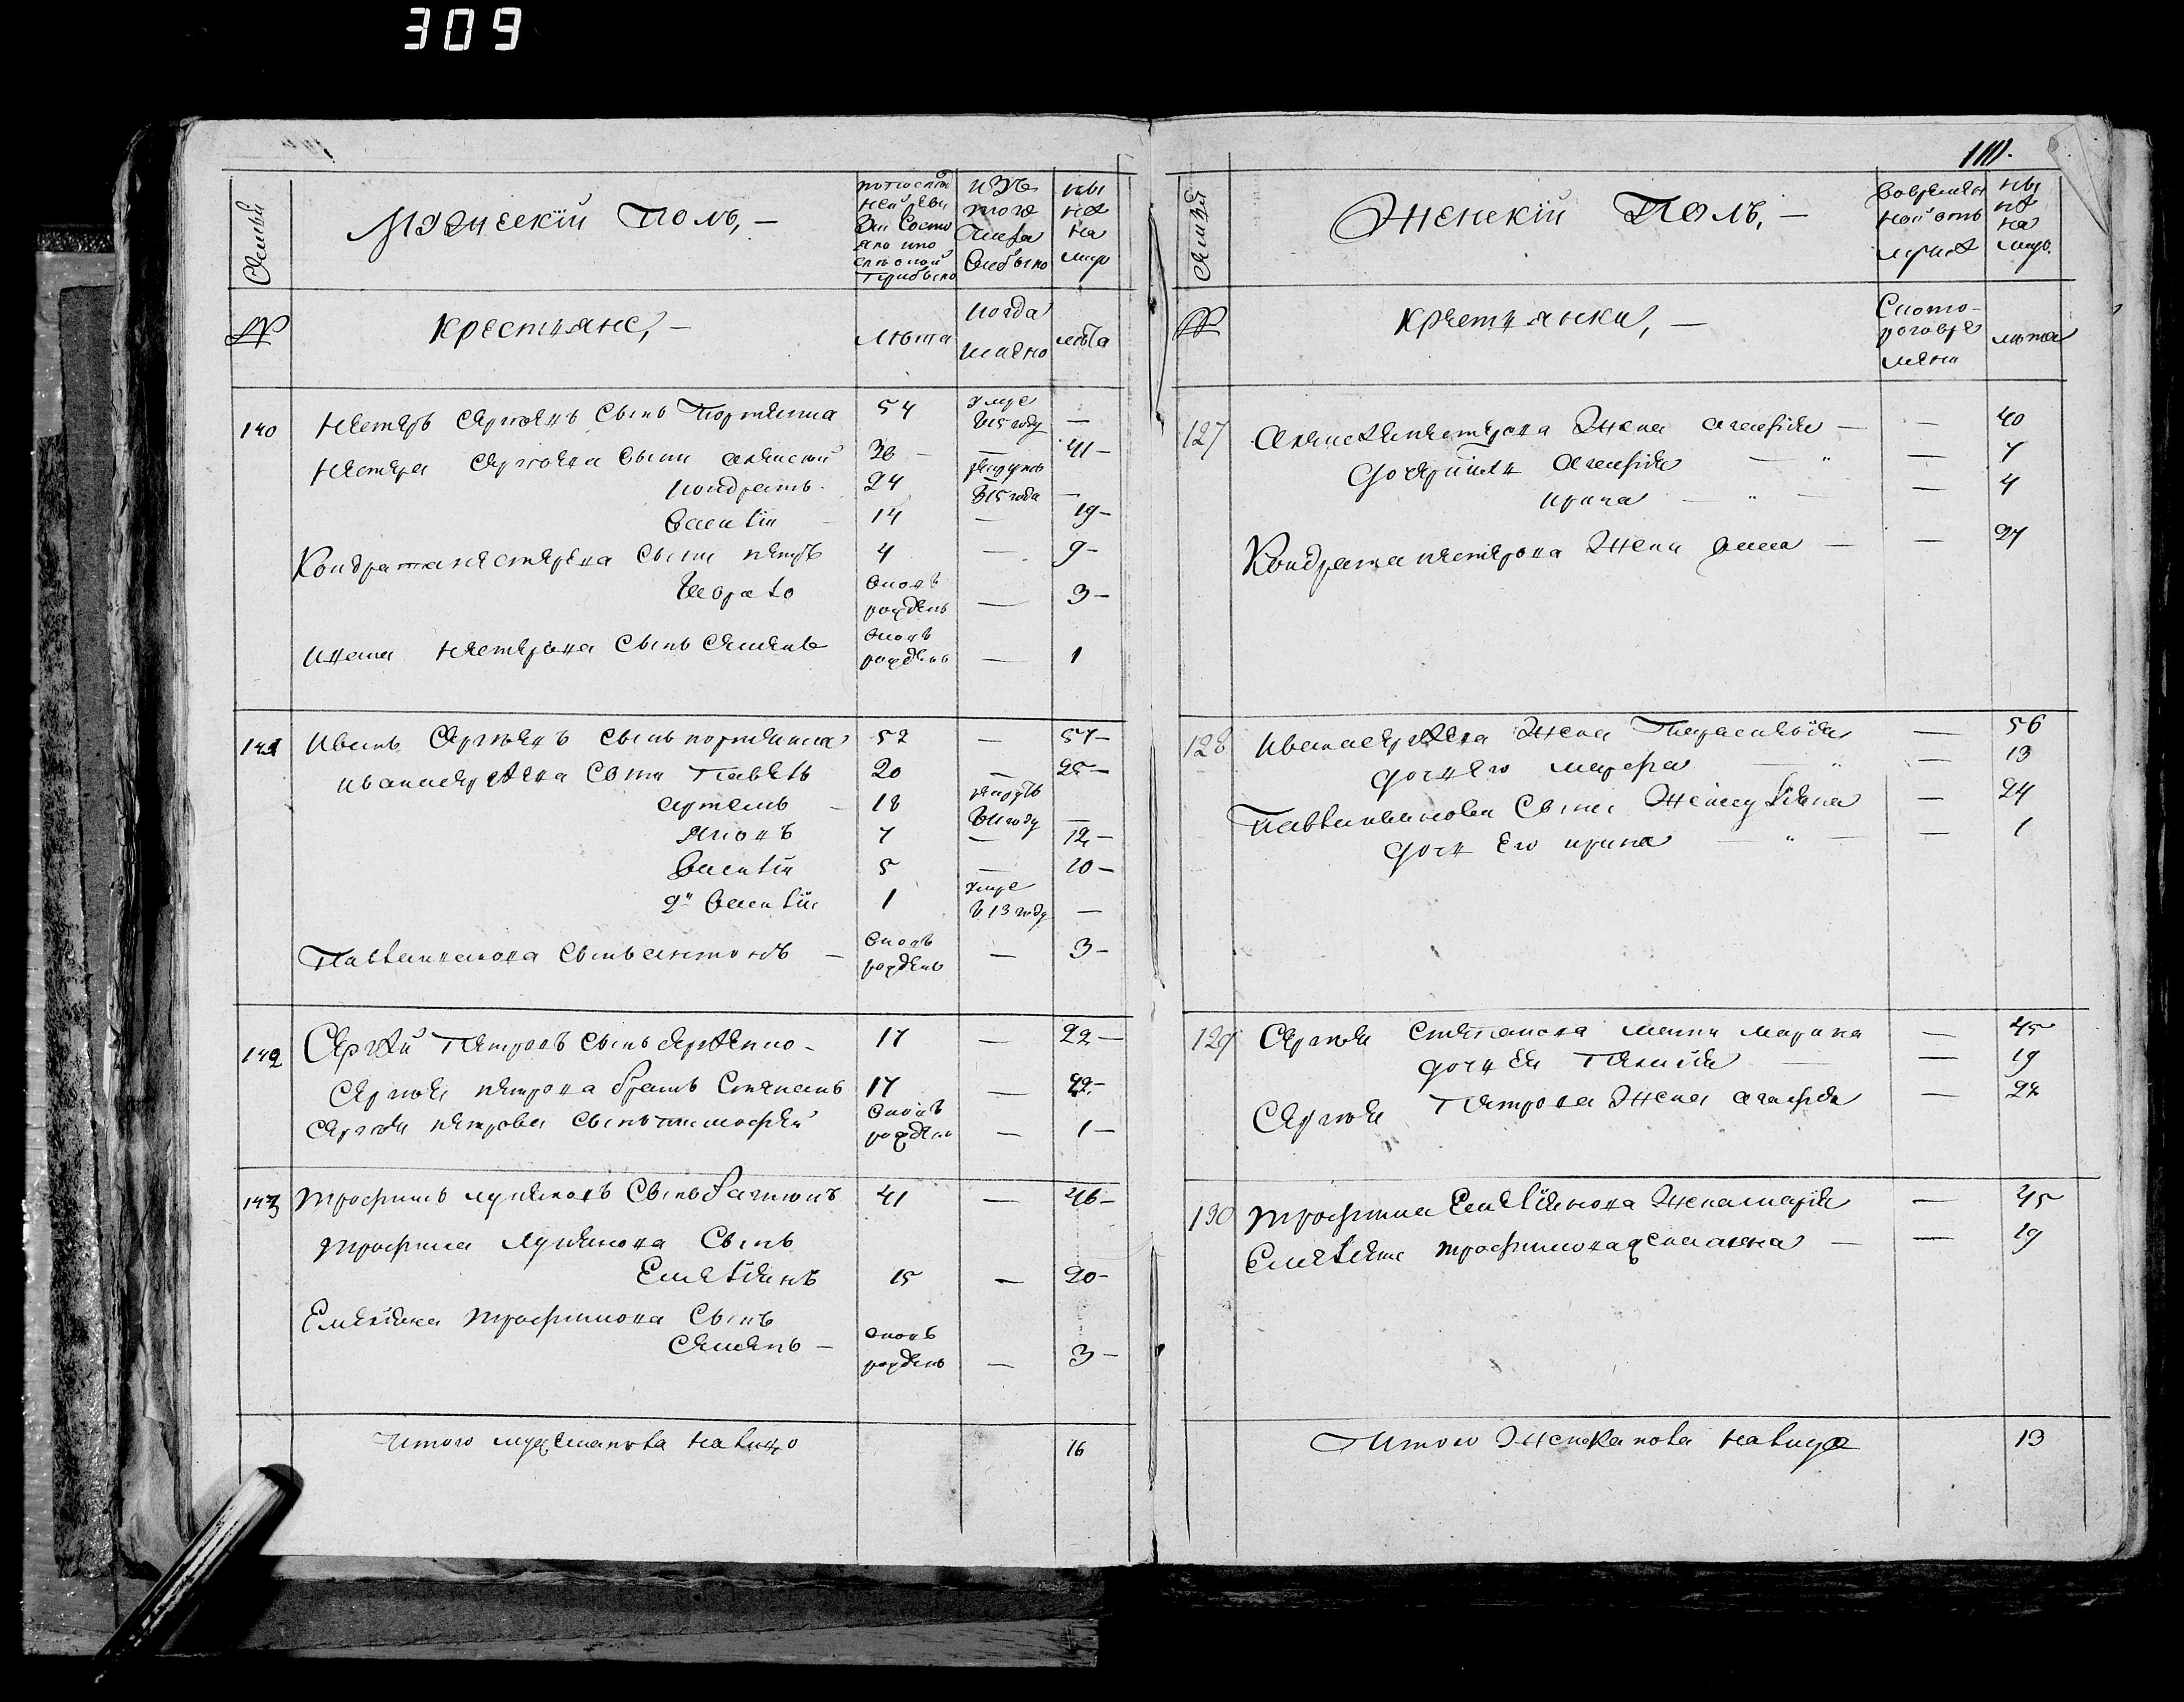 309
110.
Семьи
Мужеский Полъ, —
по последней ревизии состояло и после оной прибыло
изъ того числа выбыло
ныне на лицо
№
Крестьяне, —
лѣта
когда именно
лѣта
140 Нестеръ Сергѣевъ Сынъ 54 умре в 15 году —
Нестера Сергѣева Сынъ Алексей 36 — 41 —
Кондратъ 24 рекрутъ в 15 года —
Василій 14 — 19 —
Кондратия Нестерова Сынъ Петръ 4 — 9 —
вновь рожденъ — 3 —
Нестерова Сынъ Семенъ вновь рожденъ — 1
141 Иванъ Сергѣевъ Сынъ 52 — 57 —
Ивана Сергѣева Сынъ Павелъ 20 — 25 —
Артемъ — 18 рекрутъ в 11 году —
Яковъ 7 — 12 —
Василій 5 — 10 —
2й Василій 1 умре в 13 году —
Павла Иванова Сынъ Антонъ — вновь рожденъ — 3 —
142 Сергѣй Петровъ Сынъ 17 — 22 —
Сергѣя Петрова братъ Степанъ 17 — 22 —
Сергѣя Петрова Сынъ Тимофей вновь рожденъ — 1 —
143 Трофимъ Сынъ 41 — 46 —
Трофима Сынъ
Емельянъ 15 — 20 —
Емельяна Трофимова Сынъ
Семенъ — вновь рожденъ — 3 —
Итого мужеска пола на лицо 16
Семья
Женский Полъ, —
во временной отлучке
ныне на лицо
№
Крестьянки, —
С которого времени
лѣта
127 Алексея Нестерова Жена Агафія — — 40
Агафія — " — 7
Ирина — " — 4
Кондратия Нестерова Жена Анна — — 27
128 Ивана Сергѣева Жена — 56
дочь Его — " — 13
Павла Иванова Жена — 24
дочь Его Ирина — " — — 1
129 Сергѣя Степанова мати Марина — 45
дочь Ея — — 19
Сергѣя Петрова Жена Агафія — 22
130 Трофима Жена Марія — 45
Емельяна Трофимова жена Анна — — 19
Итого Женска пола на лицо 13